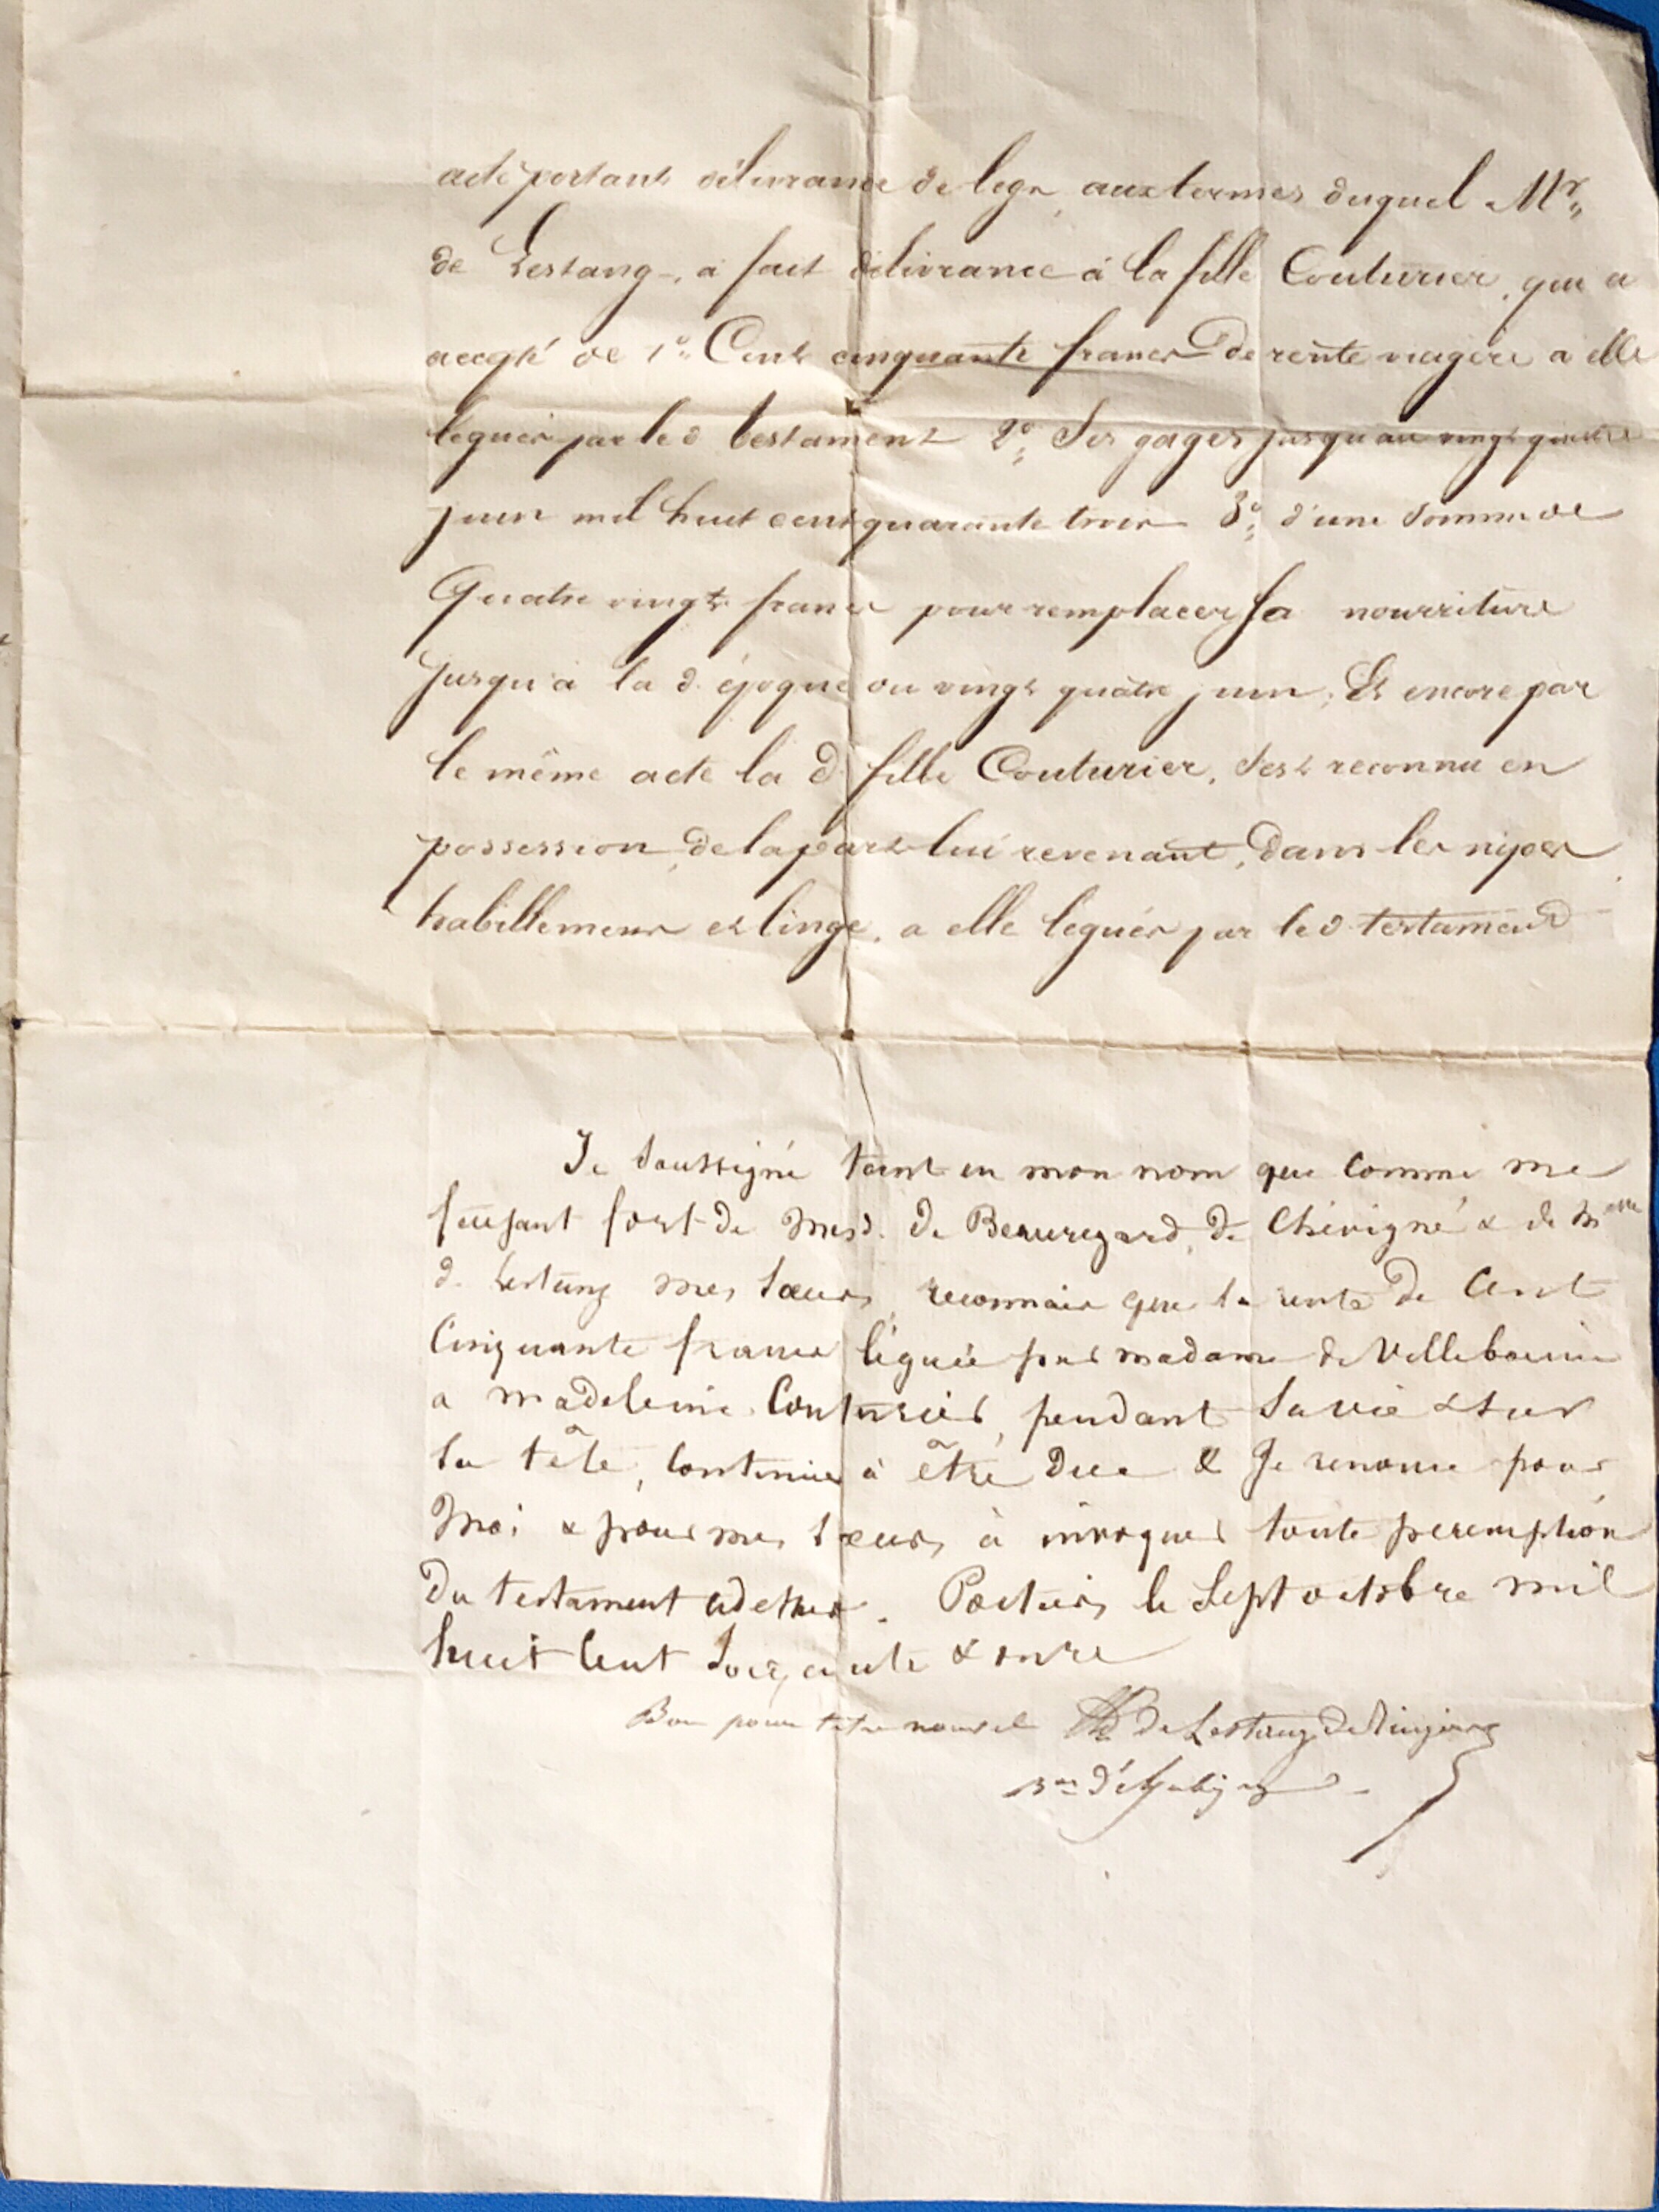 acte portant délivrance de legs, aux termes duquel Mr
de Lestang, a fait délivrance à la fille Couturier, qui a
accepté de 1º Cent cinquante francs de rente viagère a elle
leguée par led testament 2º Ses gages jusqu'au vingt quatre
juin mil huit cent quarante trois 3º d'une somme de
Quatre vingts francs pour remplacer sa nourriture
jusqu'à la d. époque ou vingt quatre juin, Et encore par
le même acte la d. fille Couturier, s'est reconnu en
possession, de la part lui revenant, dans les nipes
habillemens et linge, a elle legués par led testament
Je soussigné tant en mon nom que comme me
fesant fort de Mesd. de Beauregard, de Chévigné & de Melle
d. Lestang mes sœurs, reconnais que la rente de Cent
Cinquante francs léguée par madame de
a madeleine Couturier, pendant sa vie & sur
sa tête, continue à être due & Je renonce pour
Moi & pour mes sœurs à invoquer toute peremption
du testament cidessus. Poitiers le Sept octobre mil
huit Cent Soixante & onze
Bon pour titre nouvel de Lestang de